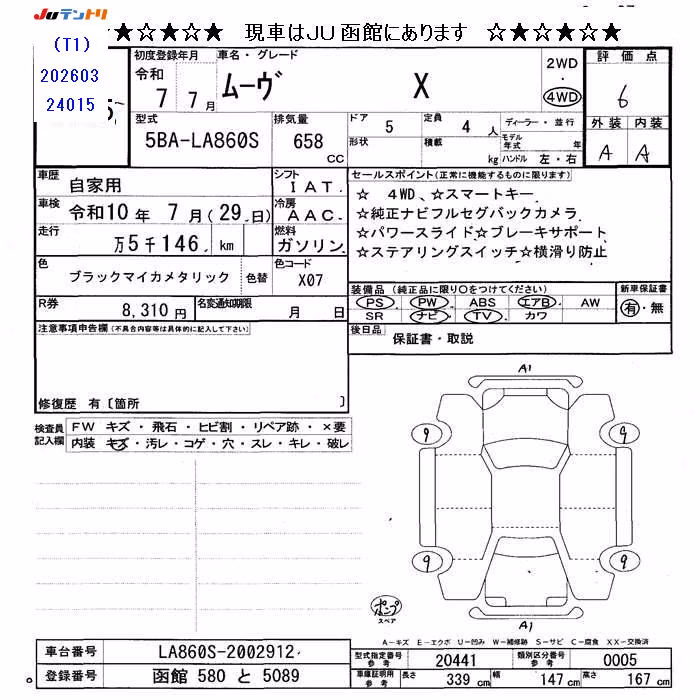 Juテントリ
★☆★☆★☆ 現車はJU函館にあります ☆★☆★☆★
(T1)
202603
24015
5
初度登録年月
令和
7 年 7 月
車名・グレード
ムーヴ X
2WD
・
4WD
評価点
6
外装 内装
A A
型式
5BA-LA860S
排気量
658
CC
ドア 5
定員 4 人
形状
積載 kg
ディーラー・並行
モデル年式 年
ハンドル 左・右
車歴
自家用
シフト
I AT.
車検
令和10年 7月(29.日)
冷房
A AC.
走行
万5千146. km
燃料
ガソリン
色
ブラックマイカメタリック
色替
色コード
X07
R券
8,310 円
名変通知期限
月 日
セールスポイント(正常に機能するものに限ります)
☆ 4WD、☆スマートキー
☆純正ナビフルセグバックカメラ
☆パワースライド☆ブレーキサポート
☆ステアリングスイッチ☆横滑り防止
装備品(純正品に限り○をつけてください)
PS PW ABS エアB AW
SR ナビ TV カワ
新車保証書
有・無
後日品
保証書・取説
注意事項申告欄(不具合内容等は具体的に記入して下さい)
修復歴 有〔箇所 〕
検査員
記入欄
FW キズ・飛石・ヒビ割・リペア跡・×要
内装 キズ・汚レ・コゲ・穴・スレ・キレ・破レ
A1
9 9
9 9
A1
ポンプ
スペア
A-キズ E-エクボ U-凹み W-補修跡 S-サビ C-腐食 XX-交換済
車台番号
LA860S-2002912.
登録番号
函館 580 と 5089
型式指定番号
参考
20441
類別区分番号
参考
0005
車庫証明用
参考
長さ 339 cm 幅 147 cm 高さ 167 cm